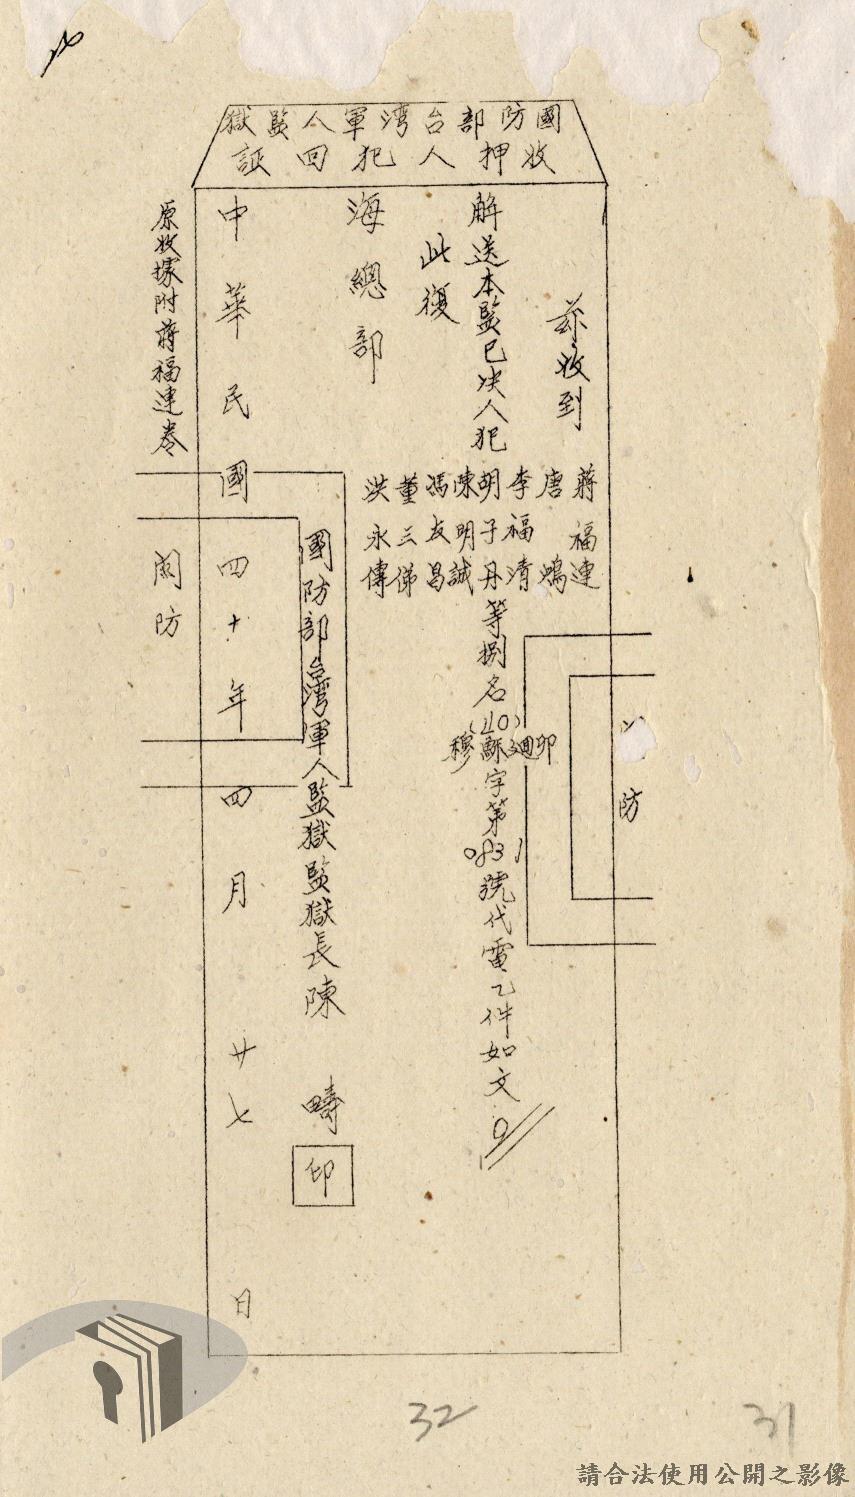 國防部台湾軍人監獄
收押人犯回証
茲收到
蔣福連
唐鴻
李福清
胡子丹
陳明誠
馮友昌
董三俤
洪永傳
解送本監已决人犯
等捌名(40)
卯迴蘇穆
字第0831號代電乙件如文
此復
海總部
國防部台湾軍人監獄監獄長陳 疇 印
中華民國四十年四月廿七日
関防
防
原收據附蔣福連卷
32
31
請合法使用公開之影像